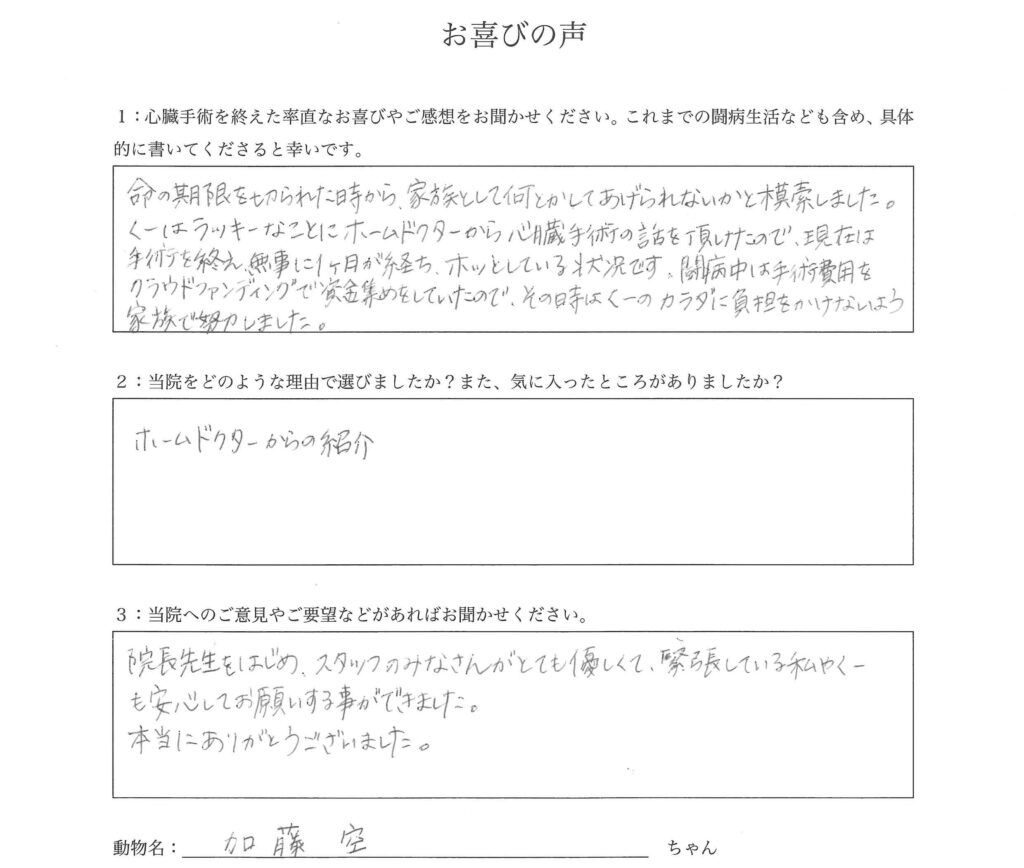 お喜びの声
1：心臓手術を終えた率直なお喜びやご感想をお聞かせください。これまでの闘病生活なども含め、具体
的に書いてくださると幸いです。
命の期限を切られた時から、家族として何とかしてあげられないかと模索しました。
くーはラッキーなことにホームドクターから心臓手術の話を頂けたので、現在は
手術を終え、無事に1ヶ月が経ち、ホッとしている状況です。闘病中は手術費用を
クラウドファンディングで資金集めをしていたので、その時はくーのカラダに負担をかけないよう
家族で努力しました。
2：当院をどのような理由で選びましたか？また、気に入ったところがありましたか？
ホームドクターからの紹介
3：当院へのご意見やご要望などがあればお聞かせください。
院長先生をはじめ、スタッフのみなさんがとても優しくて、緊張している私やくー
も安心してお願いする事ができました。
本当にありがとうございました。
動物名：加藤 空 ちゃん